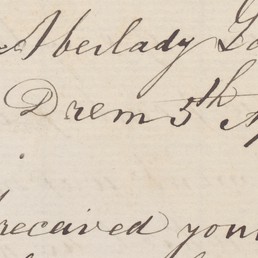 Aberlady Lo
Drem 5th Ap
received your